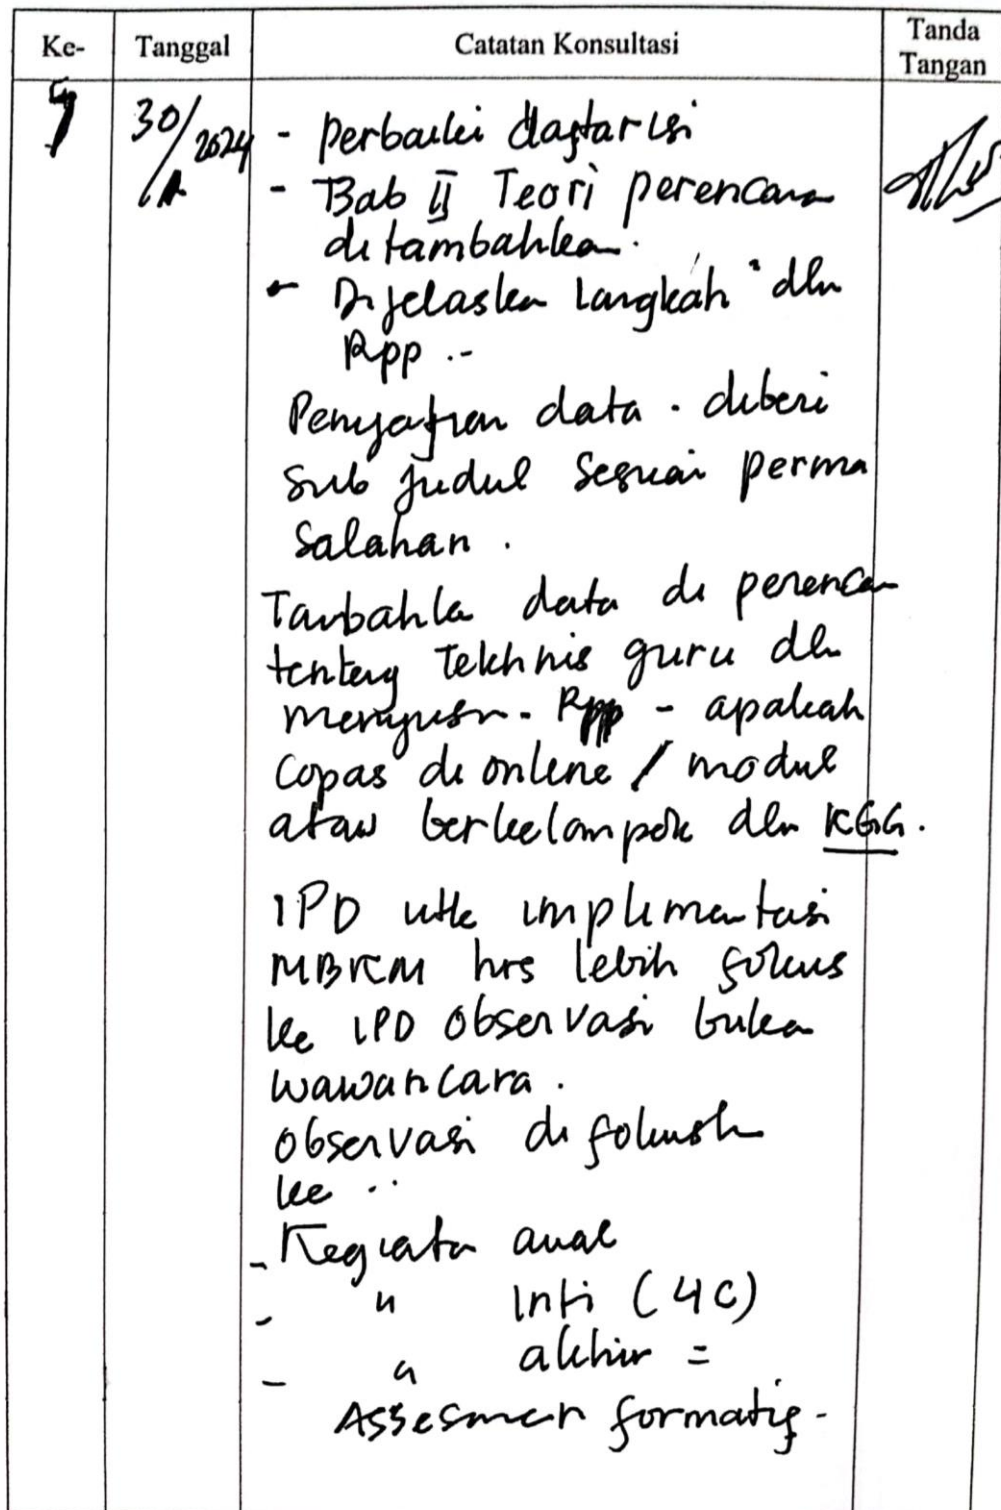 Ke- Tanggal Catatan Konsultasi Tanda Tangan
30/ 2024 - Perbaiki daftar isi
- Bab II Teori perencana
ditambahkan.
- Dijelaskan Langkah" dlm
Rpp :-
Penyajian data . diberi
Sub judul Sesuai perma
salahan .
Tambahka data di perencan
tentang Tekhnis guru dlm
menyusun - Rpp - apakah
Copas di online / modul
ataw berkelompok dlm KGG.
IPD utk implimentasi
MBKM hrs lebih fokus
ke IPD Observasi bukan
wawancara .
Observasi di fokusk
ke ..
- Kegiata awal
- " Inti (4C)
- " akhir =
Assesmen formatif -